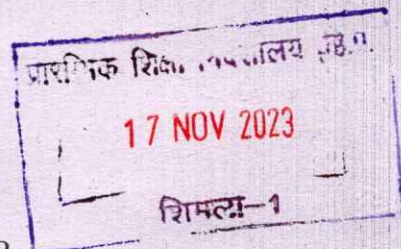 प्रारम्भिक शिक्षा
17 NOV 2023
शिमला-1